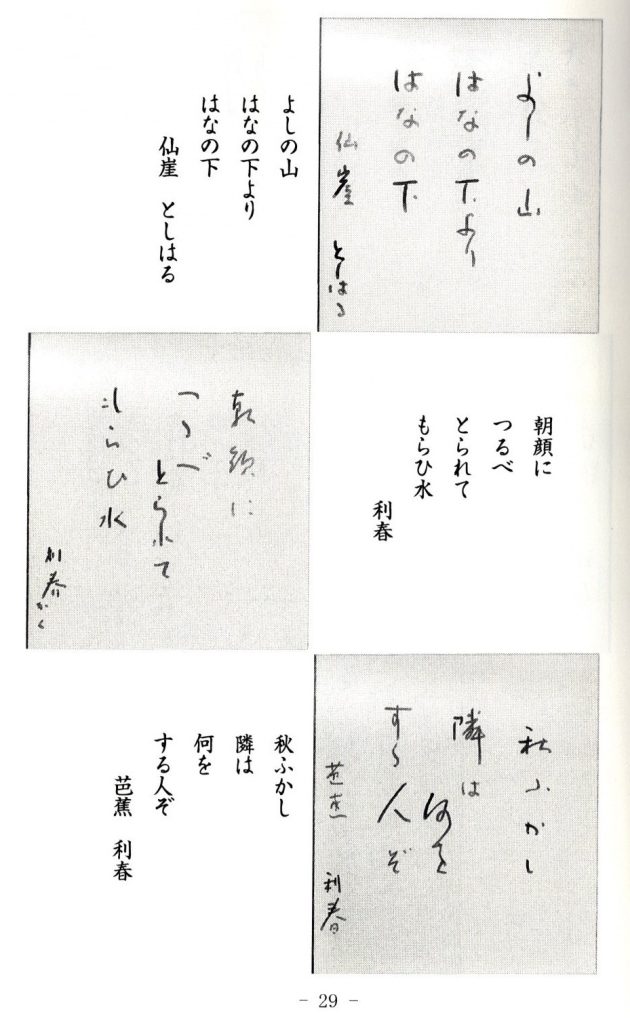 よしの山
はなの下より
はなの下
仙崖 としはる
よしの山
はなの下より
はなの下
仙崖 としはる
朝顔に
つるべ
とられて
もらひ水
利春
朝顔に
つるべ
とられて
もらひ水
利春かく
秋ふかし
隣は
何を
する人ぞ
芭蕉 利春
秋ふかし
隣は
何を
する人ぞ
芭蕉 利春
- 29 -